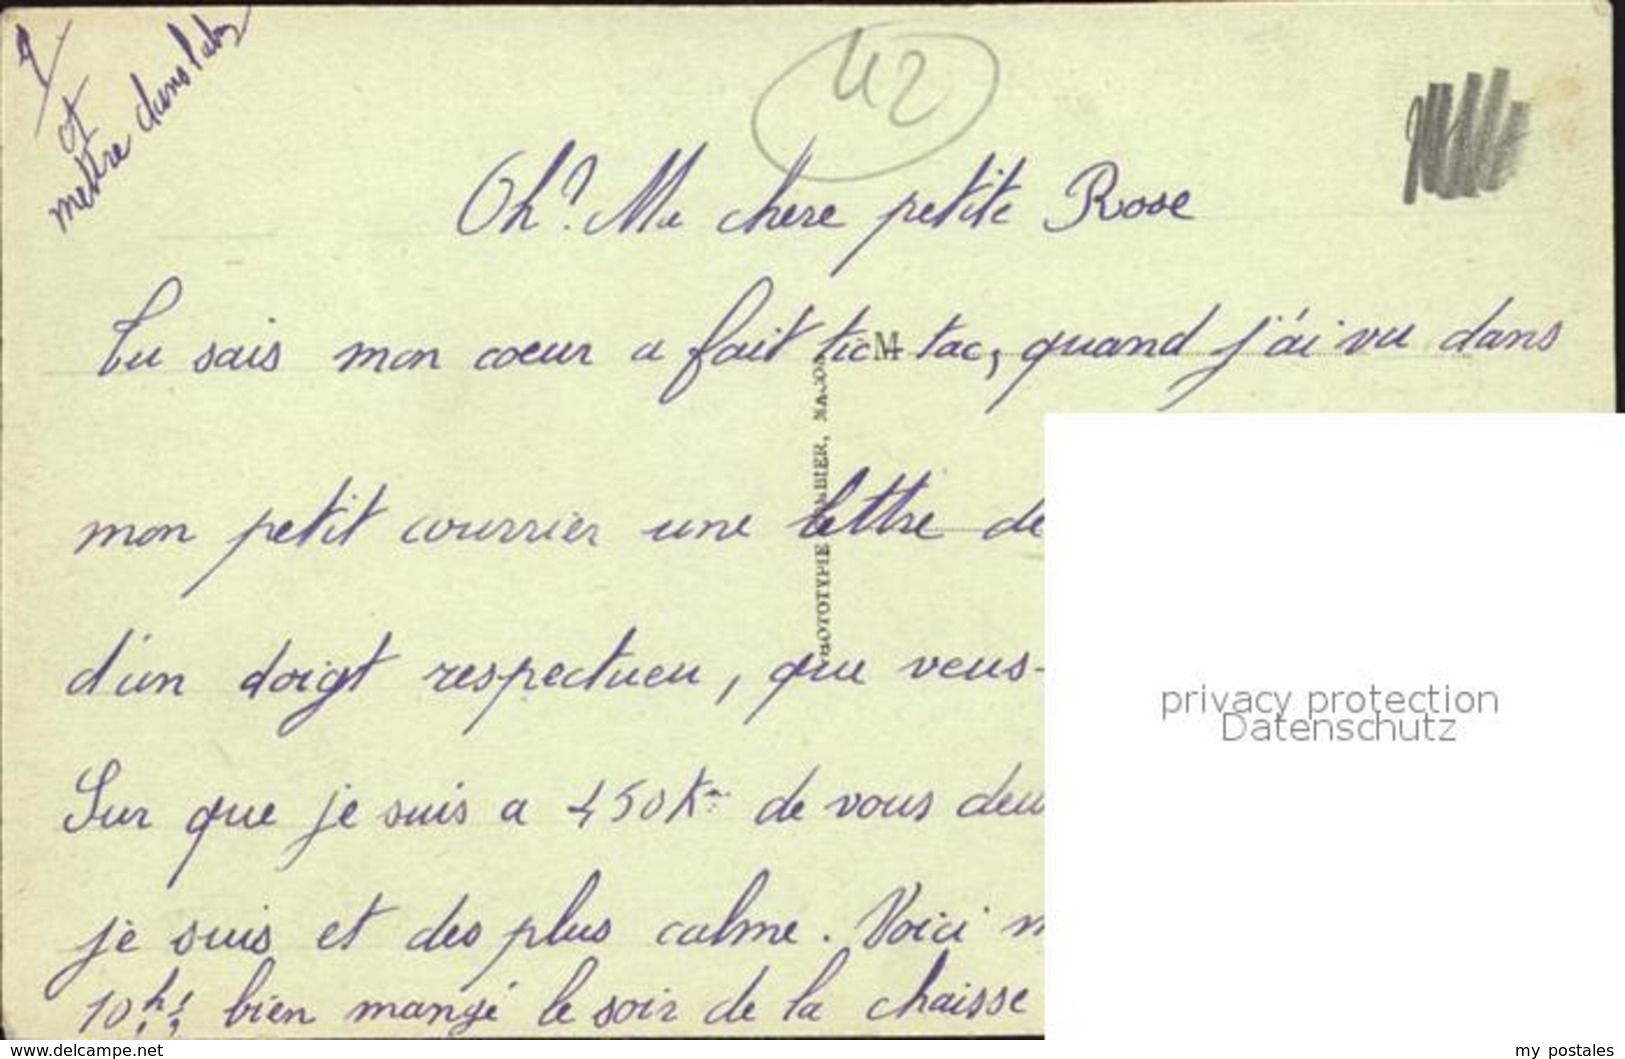 et
mettre dans l'
42
Oh? Ma chere petite Rose
Tu sais mon coeur a fait tic tac, quand j'ai vu dans
M
mon petit courrier une lettre de
d'un doigt respectueu, que veus-
Sur que je suis a 450 Km de vous deu
je suis et des plus calme. Voici
10hs bien mangé le soir de la chaisse
PHOTOTYPIE BIER, NA
privacy protection
Datenschutz
www.delcampe.net
my_postales